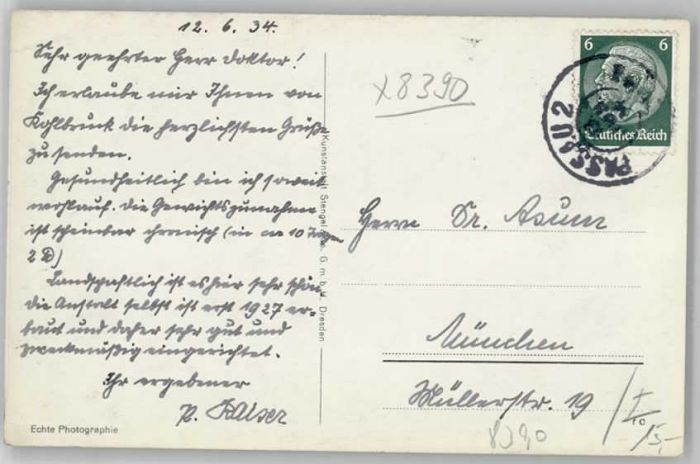 12. 6. 34.
Sehr geehrter Herr Doktor!
Ich erlaube mir Ihnen von
Kohlbruck die herzlichsten Grüße
zu senden.
Gesundheitlich bin ich soweit
wohlauf. Die Gewichtszunahme
ist scheinbar chronisch (in ca 10 Tagen
2 ℔)
Landschaftlich ist es hier sehr schön
die Anstalt selbst ist erst 1927 er-
baut und daher sehr gut und
zweckmäßig eingerichtet.
Ihr ergebener
P. Kaiser
Echte Photographie
Kunstanstalt Stengel & Co. G. m. b. H. Dresden
x8390
6 6
Deutsches Reich
PASSAU 2
Herrn Dr.
München
Müllerstr. 19
8390